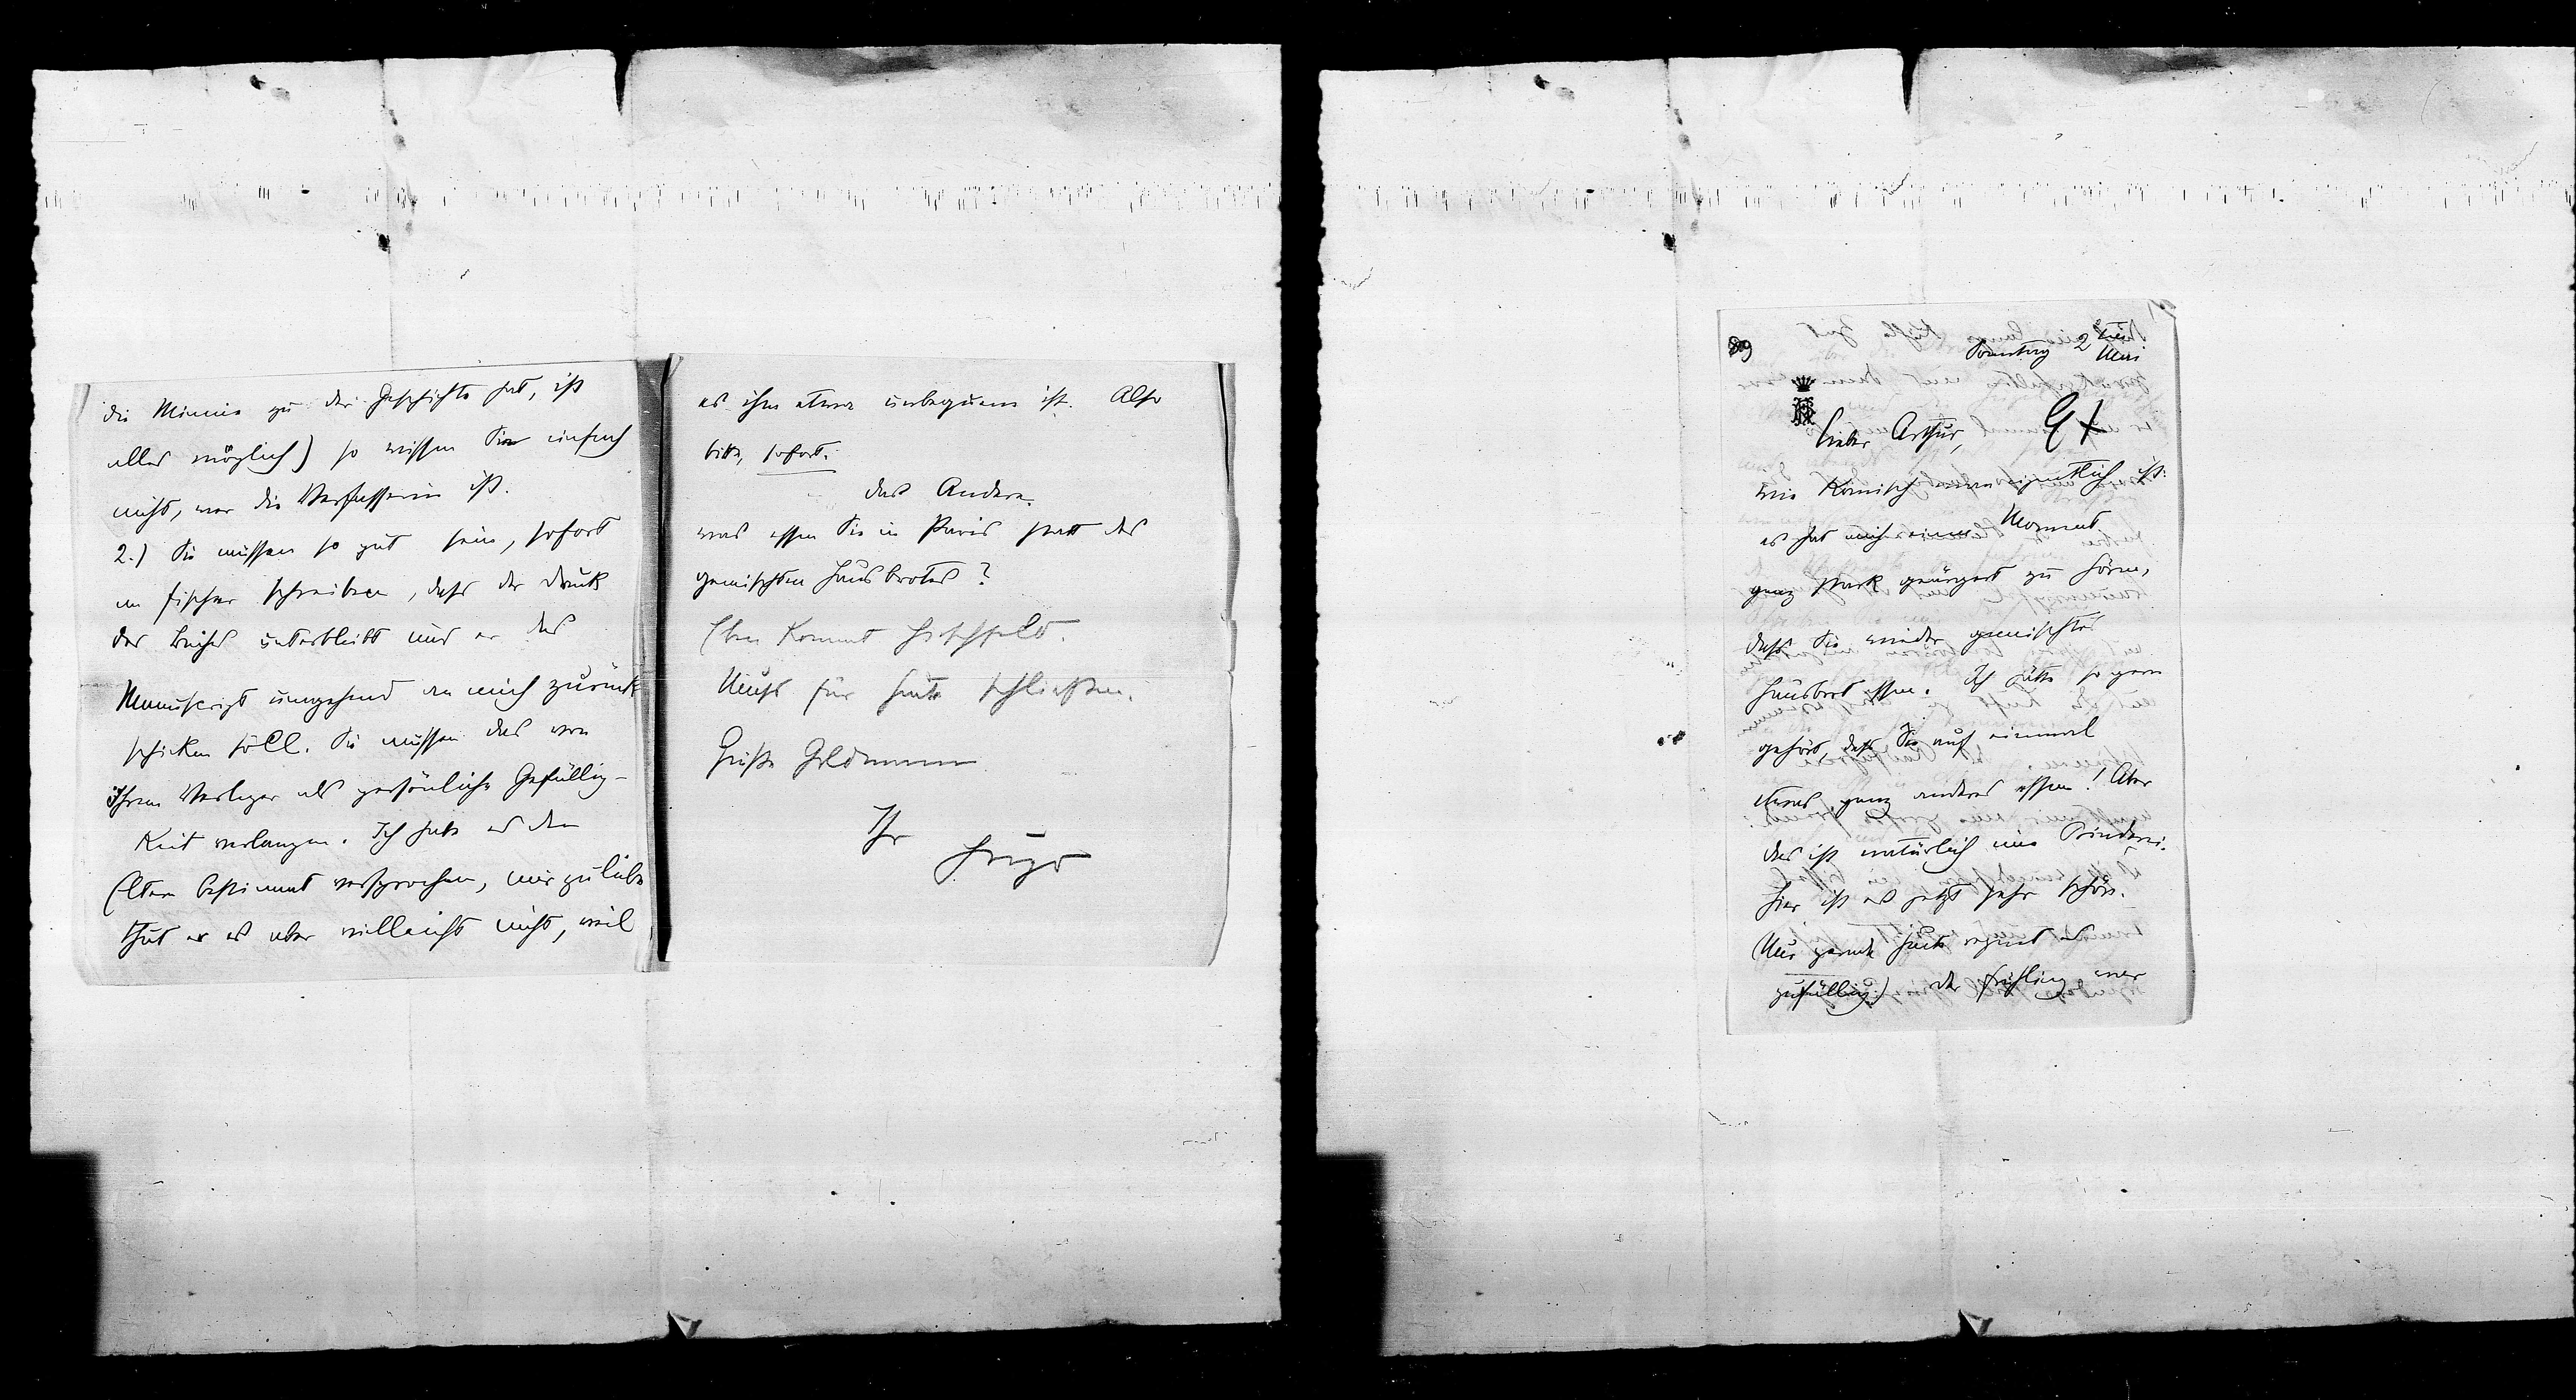 die Minnie zu der Geschichte hat, ist
alles möglich) so wissen Sie einfach
nicht, wer die Verfasserin ist.
2.) Sie müssen so gut sein, sofort
an Fischer schreiben, dass der Druck
des Buches unterbleibt und er das
Manuscript umgehend an mich zurück
schicken soll. Sie müssen das von
Ihrem Verleger als persönliche Gefällig-
keit verlangen. Ich hab es den
Eltern bestimmt versprochen, mir zulieb
thut er es aber vielleicht nicht, weil
es ihm etwa unbequem ist. Also
bitte, sofort.
das Andere.
was essen Sie in Paris statt des
gemischten Hausbrotes?
Eben kommt Hirschfeld.
Muss für heute schließen.
Grüße Goldmann
Ihr
Hugo
89
Sonntag 2ten
Mai
HH
Lieber Arthur,
wie komisch man eigentlich ist:
es hat mich einen Moment
ganz stark geärgert zu hören,
dass Sie wieder gemischtes
Hausbrot essen. Ich hätte so gern
gehört, dass Sie auf einmal
etwas ganz anderes essen! Aber
das ist natürlich eine Kinderei.
Hier ist es jetzt sehr schön.
(Nur gerade heute regnet es
zufällig.) der Frühling war